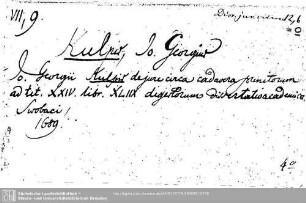 VII, 9.
Kulpis, Jo. Georgius
Jo. Georgii Kulpis de jure circa cadavera punitorum
ad tit. XXIV. libr. XLIIX digestorum dissertatio academica,
1689
4°
Sächsische Landesbibliothek -
Staats- und Universitätsbibliothek Dresden